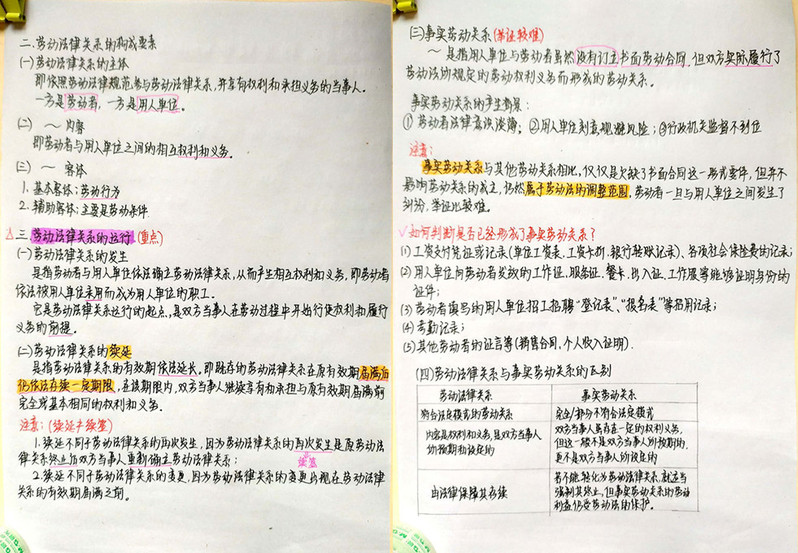 二.劳动法律关系的构成要素
(一)劳动法律关系的主体
即依照劳动法律规范参与劳动法律关系,并享有权利和承担义务的当事人。
一方是劳动者,一方是用人单位。
(二) ～ 内容
即劳动者与用人单位之间的相互权利和义务。
(三) ～ 客体
1. 基本客体:劳动行为
2. 辅助客体:主要是劳动条件
三.劳动法律关系的运行(重点)
(一)劳动法律关系的发生
是指劳动者与用人单位依法确立劳动法律关系,从而产生相互权利和义务,即劳动者
依法被用人单位录用而成为用人单位的职工。
它是劳动法律关系运行的起点,是双方当事人在劳动过程中开始行使权利和履行
义务的前提。
(二)劳动法律关系的续延
是指劳动法律关系的有效期依法延长,即既存的劳动法律关系在原有效期届满后
仍依法存续一定期限,在该期限内,双方当事人继续享有和承担与原有效期届满前
完全或基本相同的权利和义务。
注意:(续延≠续签)
1.续延不同于劳动法律关系的再次发生,因为劳动法律关系的再次发生是原劳动法
律关系终止后双方当事人重新确立劳动法律关系;
续签
2.续延不同于劳动法律关系的变更,因为劳动法律关系的变更出现在劳动法律
关系的有效期届满之前。
(三)事实劳动关系(举证较难)
～是指用人单位与劳动者虽然没有订立书面劳动合同,但双方实际履行了
劳动法所规定的劳动权利义务而形成的劳动关系。
事实劳动关系的产生背景:
①劳动者法律意识淡薄;②用人单位刻意规避风险;③行政机关监督不到位
注意:
事实劳动关系与其他劳动关系相比,仅仅是欠缺了书面合同这一形式要件,但并不
影响劳动关系的成立,仍然属于劳动法的调整范围,劳动者一旦与用人单位之间发生了
纠纷,举证比较难。
如何判断是否已经形成了事实劳动关系?
(1)工资支付凭证或记录(单位工资表、工资卡折、银行转账记录)、各项社会保险费的记录;
(2)用人单位向劳动者发放的工作证、服务证、餐卡、出入证、工作服等能够证明身份的
证件;
(3)劳动者填写的用人单位招工招聘“登记表”、“报名表”等招用记录;
(4)考勤记录;
(5)其他劳动者的证言等(销售合同、个人收入证明).
(四)劳动法律关系与事实劳动关系的区别
劳动法律关系 事实劳动关系
符合法定模式的劳动关系 完全/部分不符合法定模式
内容是权利和义务,是双方当事人 双方当事人虽存在一定的权利义务,
的预期和设定的 但这一般不是双方当事人的预期的,
更不是双方当事人的设定的
由法律保障其存续 若不能转化为劳动法律关系,就应当
强制其终止,但事实劳动关系的劳动
利益仍受劳动法的保护。